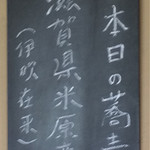 本日の蕎麦
滋賀県米原産
(伊吹在来)